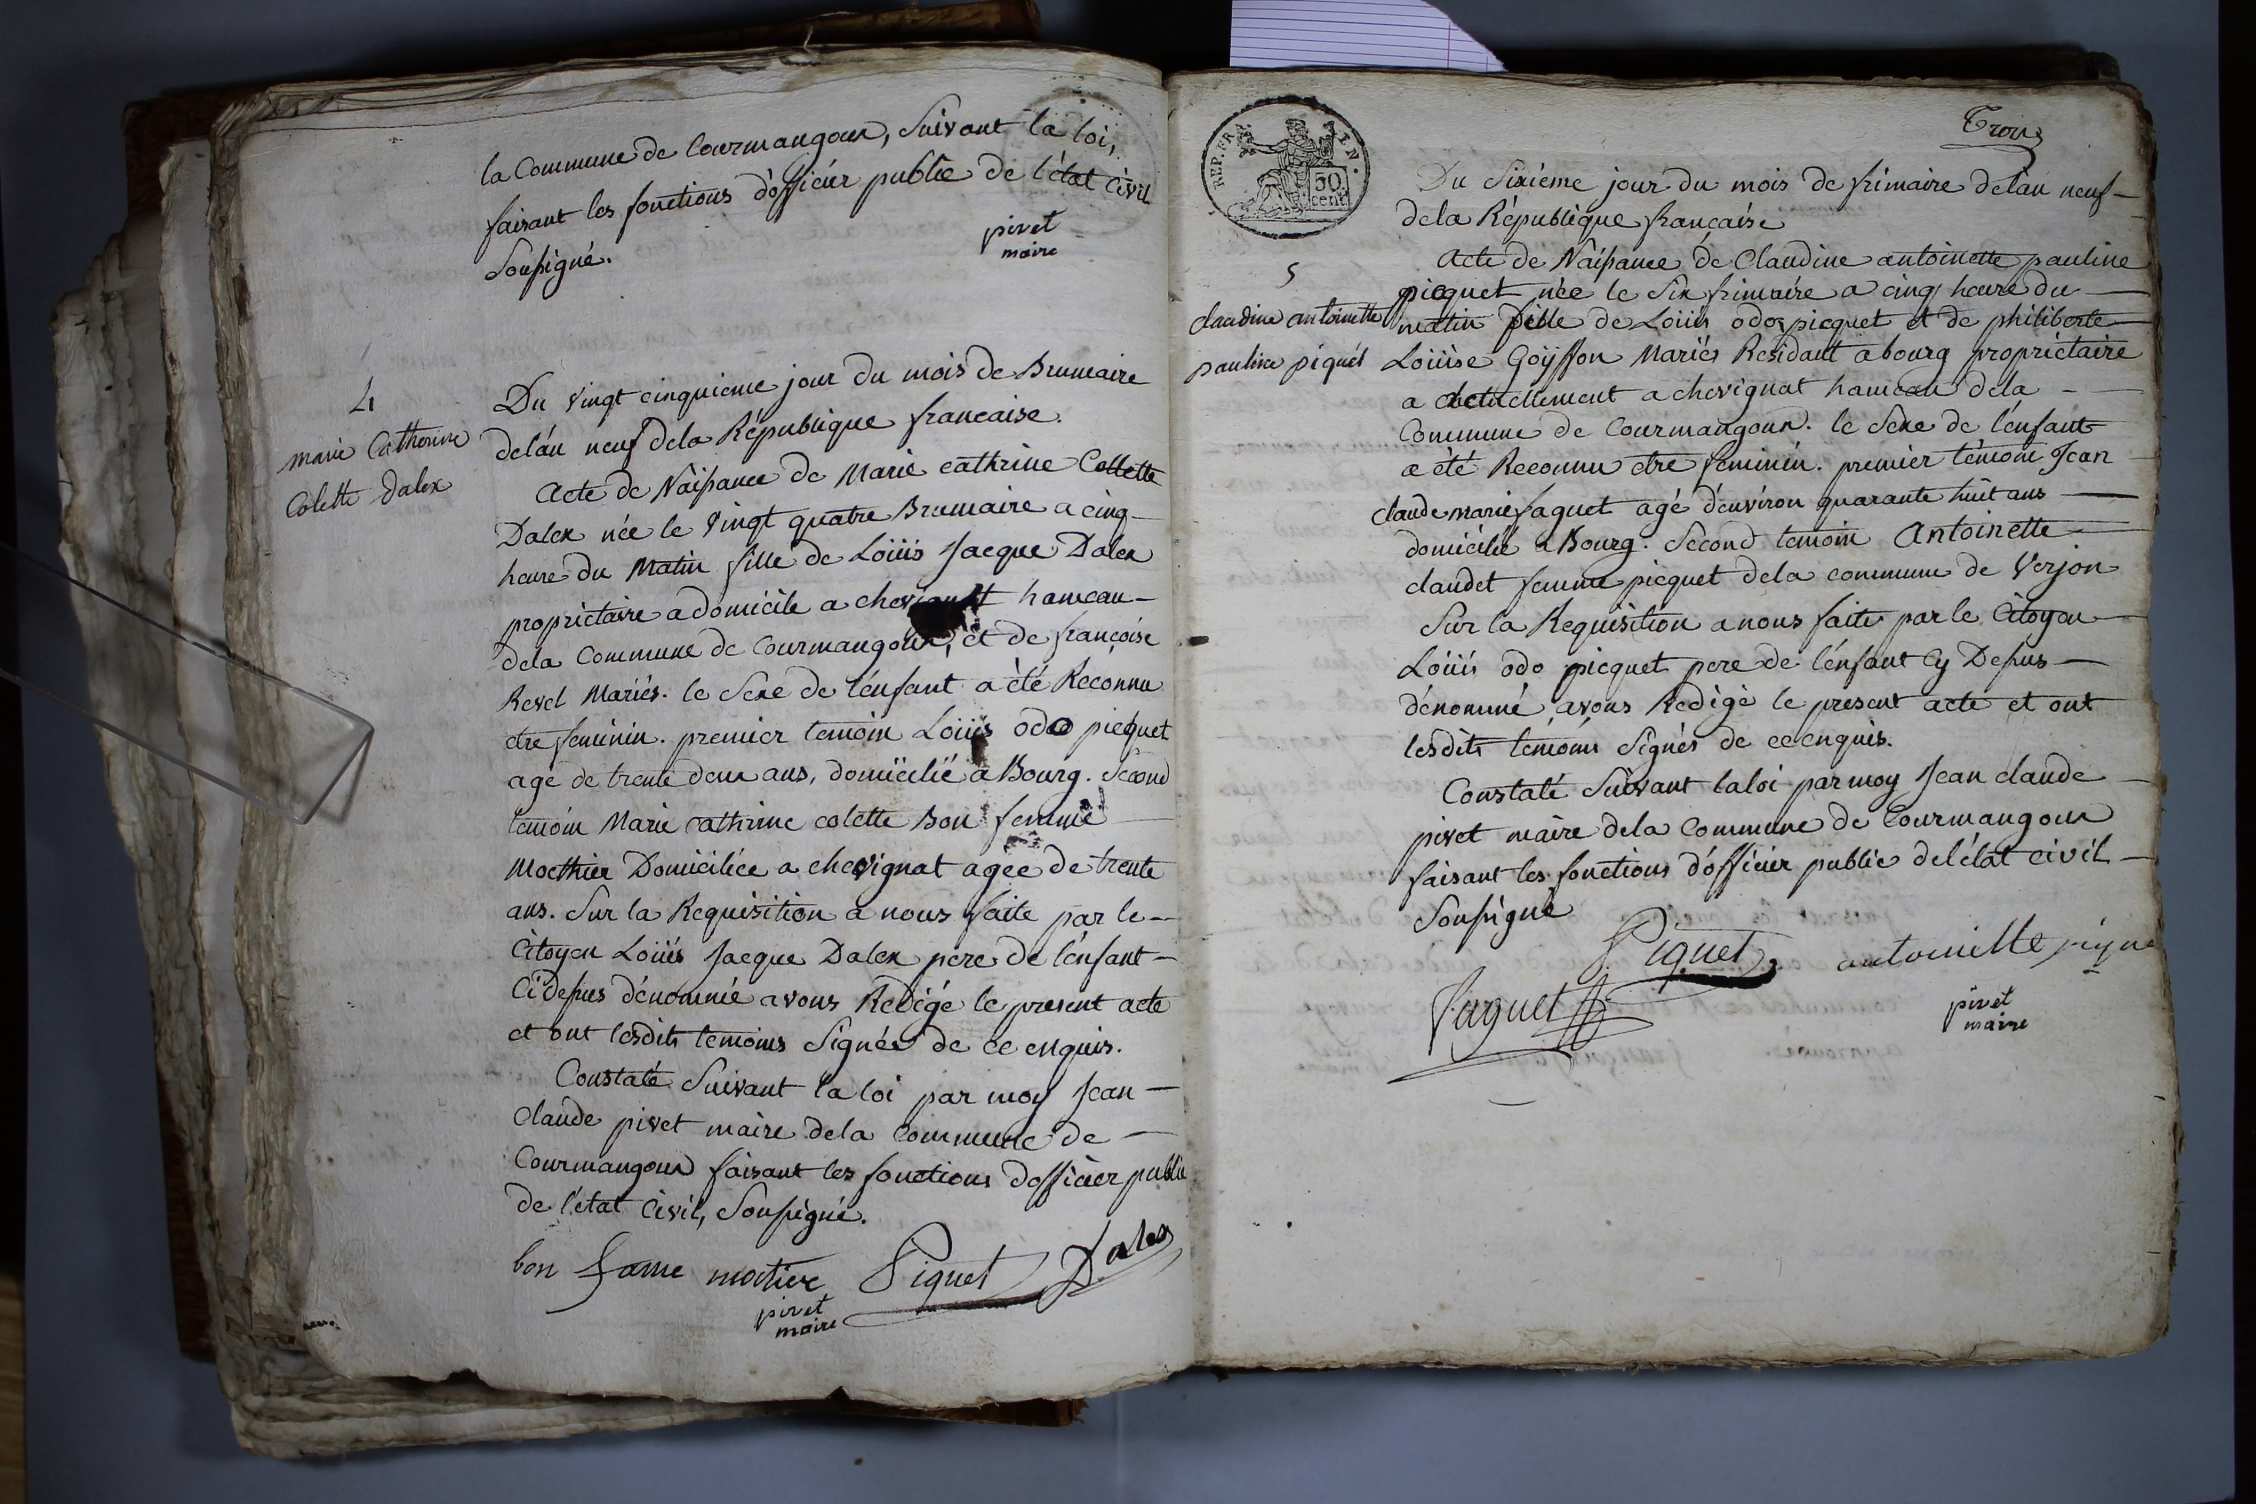 la Commune de Courmangoux, Suivant la loi,
faisant les fonctions d'officier public de l'état Civil
Soussigné.
pivet
maire
4
marie Catherine
Colette Dalex
Du vingt cinquieme jour du mois de Brumaire
delán neuf dela République francaise.
Acte de Naissance de Marie cathrine Collette
Dalex née le Vingt quatre Brumaire a cinq
heure du Matin fille de Loüis Jacque Dalex
proprietaire a domicile a chevignat hameau
dela Commune de Courmangoux, et de françoise
Revel Mariés. le Sexe de l'enfant a été Reconnu
etre feminin. premier temoin Loüis odo picquet
agé de trente deux ans, domicilié a Bourg. Second
temoin Marie cathrine colette Bon femme
Moethier Domiciliée a chevignat agée de trente
ans. Sur la Requisition a nous faite par le
Citoyen Loüis Jacque Dalex pere de l'enfant
Cidessus dénommé avons Redigé le present acte
et ont lesdits temoins Signés de ce enquis.
Constaté Suivant la loi par moy Jean
Claude pivet maire dela Commune de
Courmangoux faisant les fonctions dofficier public
de l'état Civil, Soussigné.
bon fame motiere Piquet Dalex
pivet
maire
REP. FRA. 50 cent.
Trois
5
claudine antoinette
pauline piquet
Du Sixiéme jour du mois de frimaire delan neuf
dela République française
Acte de Naissance de Claudine antoinette pauline
picquet née le Six frimaire a cinq heure du
matin fille de Loüis odo picquet et de philiberte
Loüise Goÿffon Mariés Residant a bourg proprietaire
a actuellement a chevignat hameau dela
Commune de Courmangoux. le Sexe de l'enfant
a été Reconnu etre feminin. premier témoin Jean
claude marie faquet agé d'environ quarante huit ans
domicilié a Bourg. Second temoin Antoinette
claudet femme picquet dela commune de Verjon
Sur la Requisition a nous faite par le Citoyen
Loüis odo picquet pere de l'enfant Cy Dessus
dénommé avons Redigé le present acte et ont
lesdits temoins Signés de ce enquis.
Constaté Suivant la loi par moy Jean claude
pivet maire dela Commune de Courmangoux
faisant les fonctions d'officier public del'état civil
Soussigné
Piquet antoinette
faquet
pivet
maire